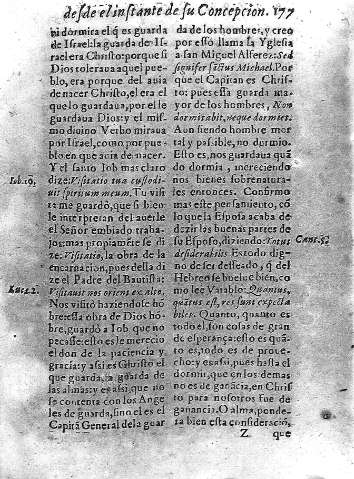 desde el instante de su Concepcion. 177
bi dormira el q̃ es guarda
de Israel: la guarda de Is-
rael era Christo: porque si
Dios toleraua aquel pue-
blo, era porque del auia
de nacer Christo, el era el
que lo guardaua, por el le
guardaua Dios: y el mis-
mo diuino Verbo miraua
por Israel, como por pue-
blo en que auia de nacer.
Y el santo Iob mas claro
Iob.10.
dize: Visitatio tua custodi-
uit spiritum meum. Tu visi-
ta me guardò, que si bien
le interpretan del auerle
el Señor embiado traba-
jos: mas propiamẽte se di
ze: Visitatio, la obra de la
encarnacion, pues della di
ze el Padre del Bautista:
Luc. 1.
Visitauit nos oriens ex alto,
Nos visitò haziendose hõ
bre: essa obra de Dios hõ-
bre, guardò a Iob que no
pecasse: esto es le merecio
el don de la paciencia y
gracia: y assi es Christo el
que guarda, la guarda de
las almas: y es assi, que no
se contenta con los Ange
les de guarda, sino el es el
Capitã General de la guar
da de los hombres, y creo
por esso llama la Yglesia
a san Miguel Alferez: Sed
signifer sãctus Michael. Por
que el Capitan es Chris-
to: pues essa guarda ma-
yor de los hombres, Non
dormitabit, neque dormiet.
Aun siendo hombre mor
tal y passible, no durmio.
Esto es, nos guardaua quã
do dormia, mereciendo
nos bienes sobrenatura-
les entonces. Confirmo
mas este pensamiento, cõ
lo que la Esposa acaba de
dezir las buenas partes de
su Esposo, diziendo: Totus
Cant. 5.
desiderabilis Es todo dig-
no de ser desseado, q̃ del
Hebreo se buelue bien, co
mo lee Varablo: Quantus,
quãtus est, res sunt expecta
biles. Quanto, quanto es
todo el, son cosas de gran
de esperança: esto es quã-
to es, todo es de proue-
cho: y es assi, pues hasta el
dormir, que en los demas
no es de ganãcia, en Chris
to para nosotros fue de
ganancia. O alma, ponde-
ra bien esta consideraciõ,
Z
que